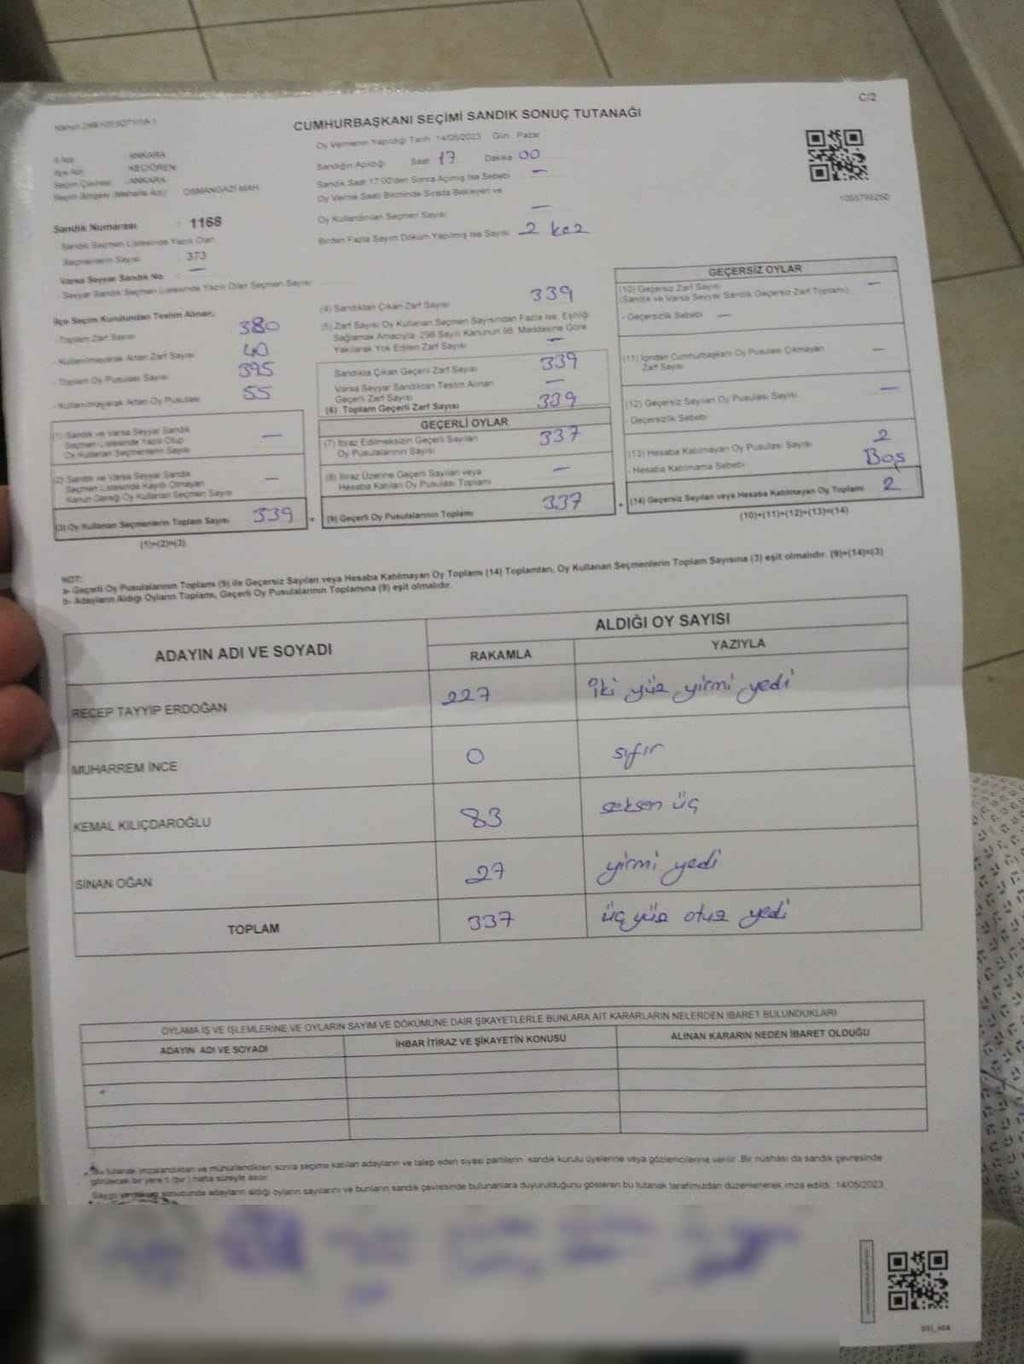 C/2
CUMHURBAŞKANI SEÇİMİ SANDIK SONUÇ TUTANAĞI
Oy Vermenin Yapıldığı Tarih 14/05/2023 Gün Pazar
İl Adı ANKARA
İlçe Adı KEÇİÖREN
Seçim Çevresi ANKARA
Seçim Bölgesi (Mahalle Adı) OSMANGAZİ MAH.
Sandığın Açıldığı Saat 17 Dakika 00
Sandık Saat 17:00'den Sonra Açılmış İse Sebebi —
Oy Verme Saati Bitiminde Sırada Bekleyen ve
Oy Kullandırılan Seçmen Sayısı —
Birden Fazla Sayım Döküm Yapılmış İse Sayısı 2 kez
Sandık Numarası : 1168
- Sandık Seçmen Listesinde Yazılı Olan
Seçmenlerin Sayısı 373
Varsa Seyyar Sandık No —
- Seyyar Sandık Seçmen Listesinde Yazılı Olan Seçmen Sayısı
İlçe Seçim Kurulundan Teslim Alınan;
- Toplam Zarf Sayısı 380
- Kullanılmayarak Artan Zarf Sayısı 40
- Toplam Oy Pusulası Sayısı 395
- Kullanılmayarak Artan Oy Pusulası 55
(1) Sandık ve Varsa Seyyar Sandık
Seçmen Listesinde Yazılı Olup
Oy Kullanan Seçmenlerin Sayısı —
(2) Sandık ve Varsa Seyyar Sandık
Seçmen Listesinde Kayıtlı Olmayan
Kanun Gereği Oy Kullanan Seçmen Sayısı —
(3) Oy Kullanan Seçmenlerin Toplam Sayısı 339
(1)+(2)=(3)
(4) Sandıktan Çıkan Zarf Sayısı 339
(5) Zarf Sayısı Oy Kullanan Seçmen Sayısından Fazla İse, Eşitliği
Sağlamak Amacıyla 298 Sayılı Kanunun 98. Maddesine Göre
Yakılarak Yok Edilen Zarf Sayısı —
Sandıkta Çıkan Geçerli Zarf Sayısı 339
Varsa Seyyar Sandıktan Teslim Alınan
Geçerli Zarf Sayısı —
(6) Toplam Geçerli Zarf Sayısı 339
GEÇERLİ OYLAR
(7) İtiraz Edilmeksizin Geçerli Sayılan
Oy Pusulasının Sayısı 337
(8) İtiraz Üzerine Geçerli Sayılan veya
Hesaba Katılan Oy Pusulası Toplamı —
(9) Geçerli Oy Pusulalarının Toplamı 337
GEÇERSİZ OYLAR
(10) Geçersiz Zarf Sayısı —
(Sandık ve Varsa Seyyar Sandık Geçersiz Zarf Toplamı)
- Geçersizlik Sebebi —
(11) İçinden Cumhurbaşkanı Oy Pusulası Çıkmayan
Zarf Sayısı —
(12) Geçersiz Sayılan Oy Pusulası Sayısı —
- Geçersizlik Sebebi
(13) Hesaba Katılmayan Oy Pusulası Sayısı 2
- Hesaba Katılmama Sebebi Boş
(14) Geçersiz Sayılan veya Hesaba Katılmayan Oy Toplamı 2
(10)+(11)+(12)+(13)=(14)
NOT:
a- Geçerli Oy Pusulalarının Toplamı (9) ile Geçersiz Sayılan veya Hesaba Katılmayan Oy Toplamı (14) Toplamları, Oy Kullanan Seçmenlerin Toplam Sayısına (3) eşit olmalıdır. (9)+(14)=(3)
b- Adayların Aldığı Oyların Toplamı, Geçerli Oy Pusulalarının Toplamına (9) eşit olmalıdır.
ADAYIN ADI VE SOYADI ALDIĞI OY SAYISI
RAKAMLA YAZIYLA
RECEP TAYYİP ERDOĞAN 227 iki yüz yirmi yedi
MUHARREM İNCE 0 sıfır
KEMAL KILIÇDAROĞLU 83 seksen üç
SİNAN OĞAN 27 yirmi yedi
TOPLAM 337 üç yüz otuz yedi
OYLAMA İŞ VE İŞLEMLERİNE VE OYLARIN SAYIM VE DÖKÜMÜNE DAİR ŞİKAYETLERLE BUNLARA AİT KARARLARIN NELERDEN İBARET BULUNDUKLARI
ADAYIN ADI VE SOYADI İHBAR İTİRAZ VE ŞİKAYETİN KONUSU ALINAN KARARIN NEDEN İBARET OLDUĞU
Bu tutanak imzalandıktan ve mühürlendikten sonra seçime katılan adayların ve talep eden siyasi partilerin sandık kurulu üyelerine veya gözlemcilerine verilir. Bir nüshası da sandık çevresinde
görülecek bir yere 1 (bir) hafta süreyle asılır.
sonucunda adayların aldığı oyların sayılarını ve bunların sandık çevresinde bulunanlara duyurulduğunu gösteren bu tutanak tarafımızdan düzenlenerek imza edildi. 14/05/2023